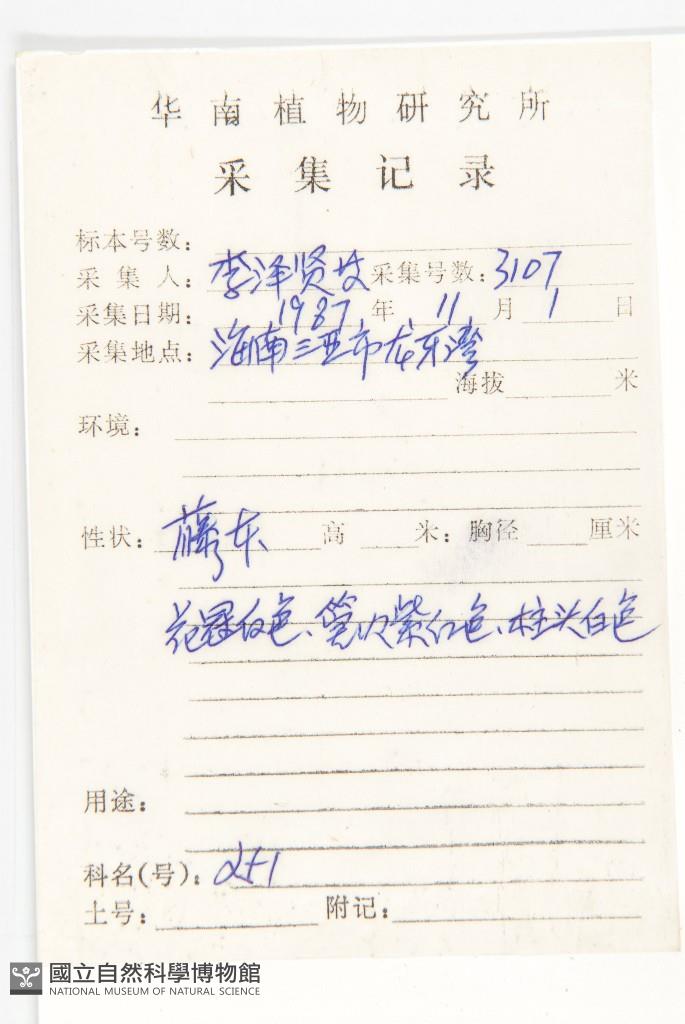 华南植物研究所
采集记录
标本号数:
采集人: 李泽贤 采集号数: 3107
采集日期: 1987 年 11 月 1 日
采集地点: 海南三亚市
海拔 米
环境:
性状: 藤本 高 米: 胸径 厘米
花冠 色、 紫红色、柱头白色
用途:
科名(号): 251
土号: 附记:
國立自然科學博物館
NATIONAL MUSEUM OF NATURAL SCIENCE